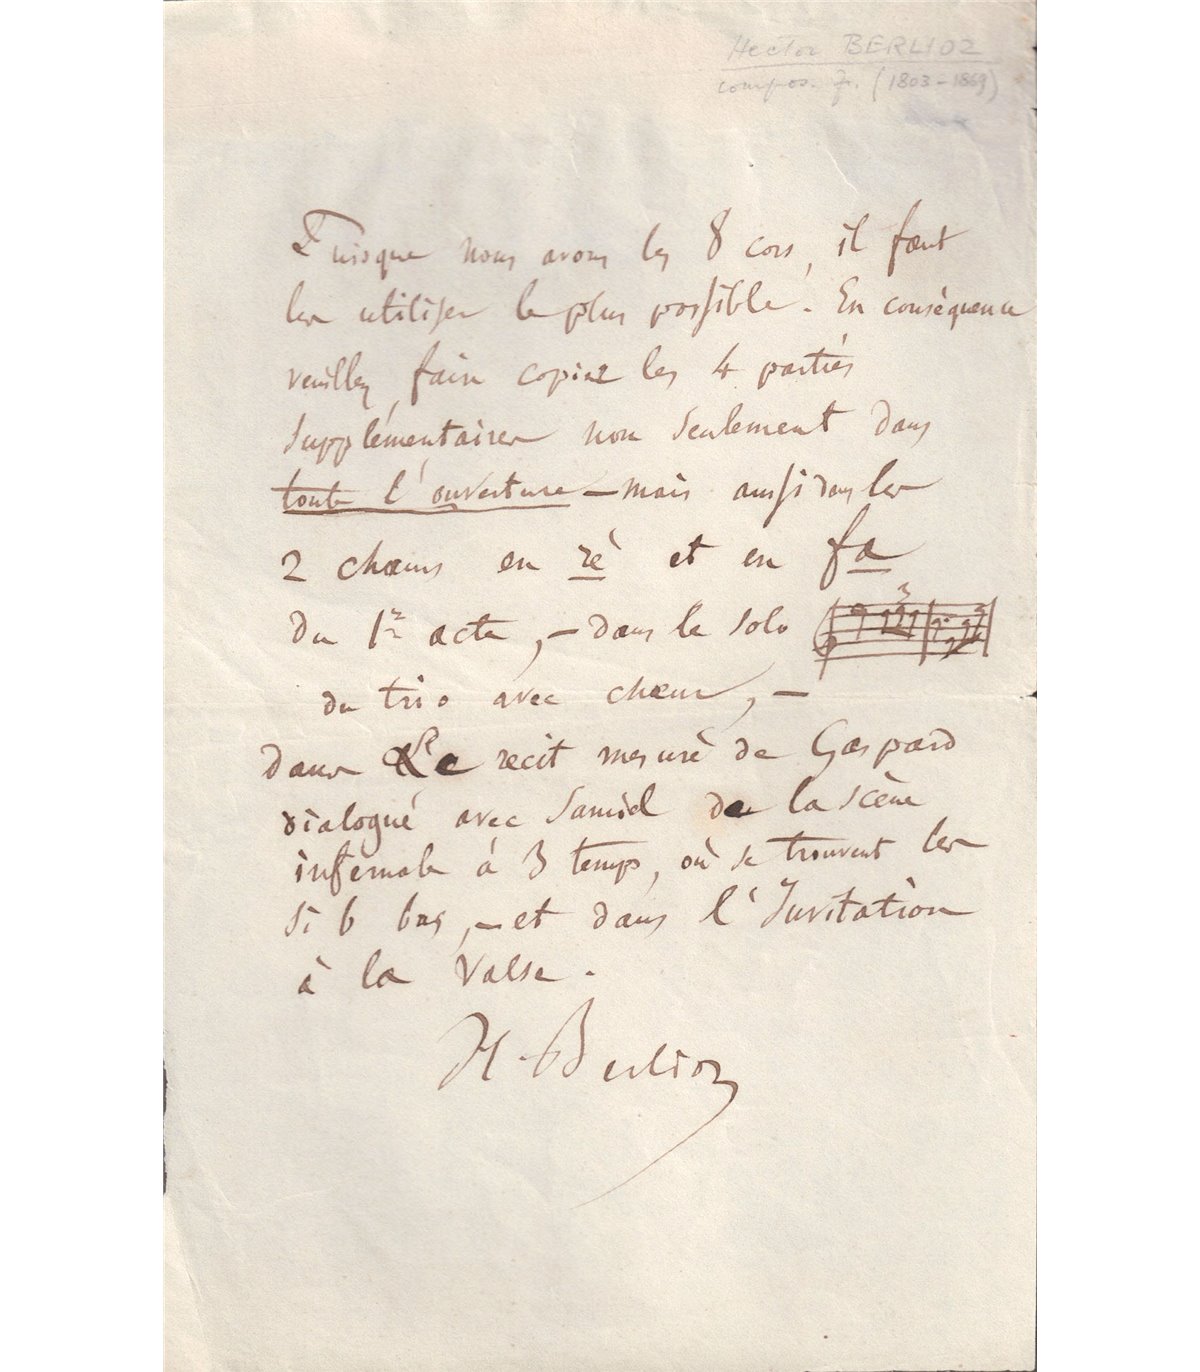 Hector BERLIOZ
compos. f. (1803-1869)
Puisque nous avons les 8 cors, il faut
les utiliser le plus possible. En conséquence
veuillez faire copier les 4 parties
supplémentaires non seulement dans
toute l'ouverture – mais aussi dans les
2 chœurs en ré et en fa
du 1er acte, – dans le solo 3
du trio avec chœur, –
dans le récit mesuré de Gaspard
dialogué avec Samiel de la scène
infernale à 3 temps, où se trouvent les
si b bas, – et dans l'Invitation
à la Valse.
H. Berlioz